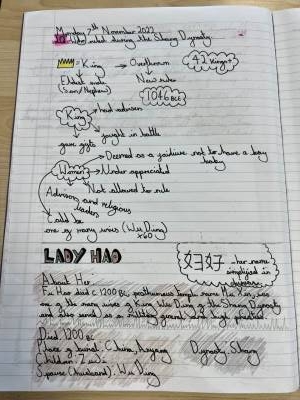 Monday 7th November 2022
Who ruled during the Shang Dynasty
= King → Overthrown
42 Kings
Eldest male
(Son/Nephew)
New ruler
1046 BCE
King
had advisors
fought in battle
gave gifts
Deemed as a failure not to have a boy
baby
Women
Under appreciated
Not allowed to rule
Advisors and religious
leaders
Could be
one of many wives (Wu Ding)
×60
LADY HAO
妇好
her name
simplified in
chinese
About Her
Fu Hao died c 1200 BC, posthumous temple name Mu Xin, was
one of the many wives of King Wu Ding of the Shang Dynasty
and also served as a military general and high priestess
Died: 1200 BC
Place of burial: China, Anyang
Dynasty: Shang
Children: Zu Ji
Spouse (husband): Wu Ding